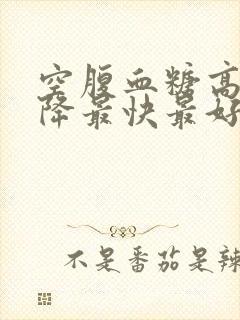 空腹血糖高
降最快最好
不是番茄是辣